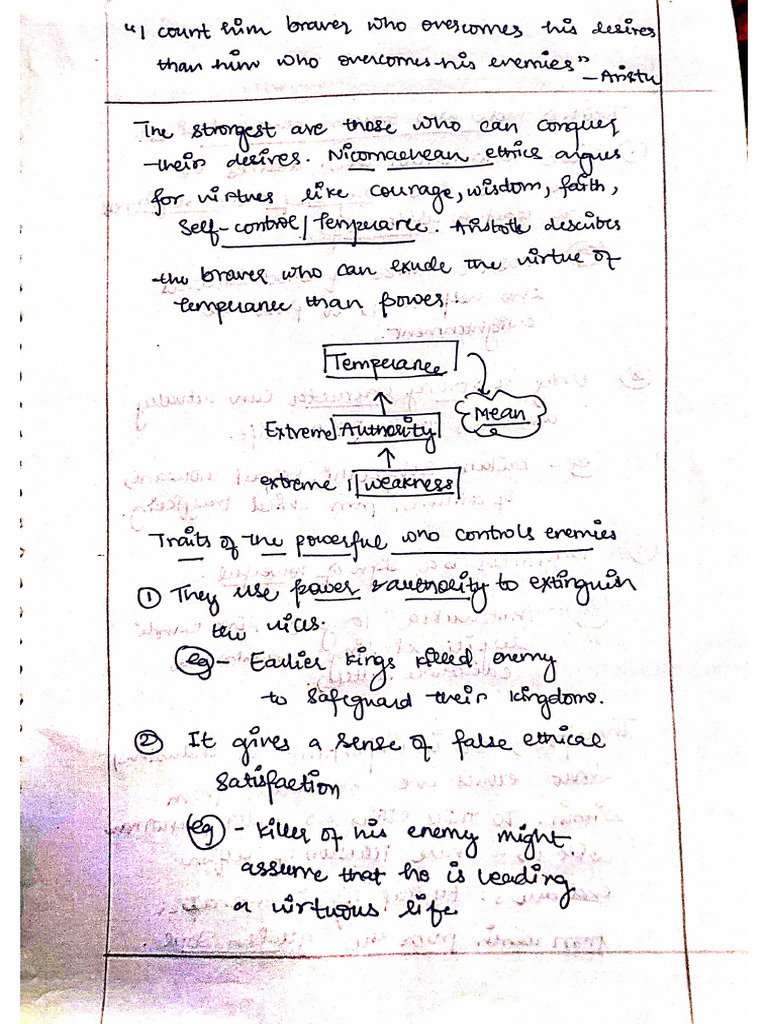 "I count him braver who overcomes his desires
than him who overcomes his enemies" – Aristu
The strongest are those who can conquer
their desires. Nicomachean ethics argues
for virtues like courage, wisdom, faith,
Self-control / Temperance. Aristotle describes
the braver who can exude the virtue of
temperance than power.
Temperance
Mean
Extreme Authority
extreme weakness
Traits of the powerful who controls enemies
① They use power & authority to extinguish
the vices.
eg – Earlier kings killed enemy
to safeguard their kingdoms.
② It gives a sense of false ethical
satisfaction
eg – Killer of his enemy might
assume that he is leading
a virtuous life.